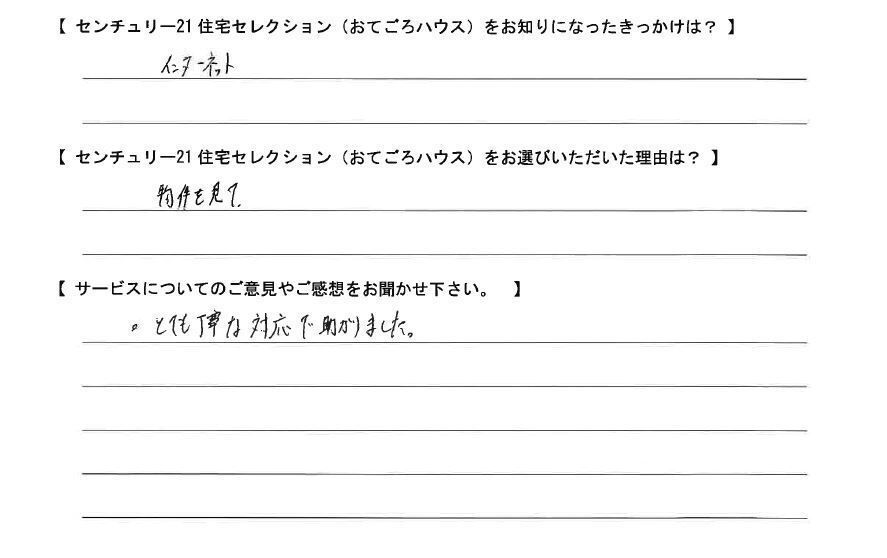 【 センチュリー21 住宅セレクション（おてごろハウス）をお知りになったきっかけは？ 】
インターネット
【 センチュリー21 住宅セレクション（おてごろハウス）をお選びいただいた理由は？ 】
物件を見て
【 サービスについてのご意見やご感想をお聞かせ下さい。 】
。とても丁寧な対応で助かりました。